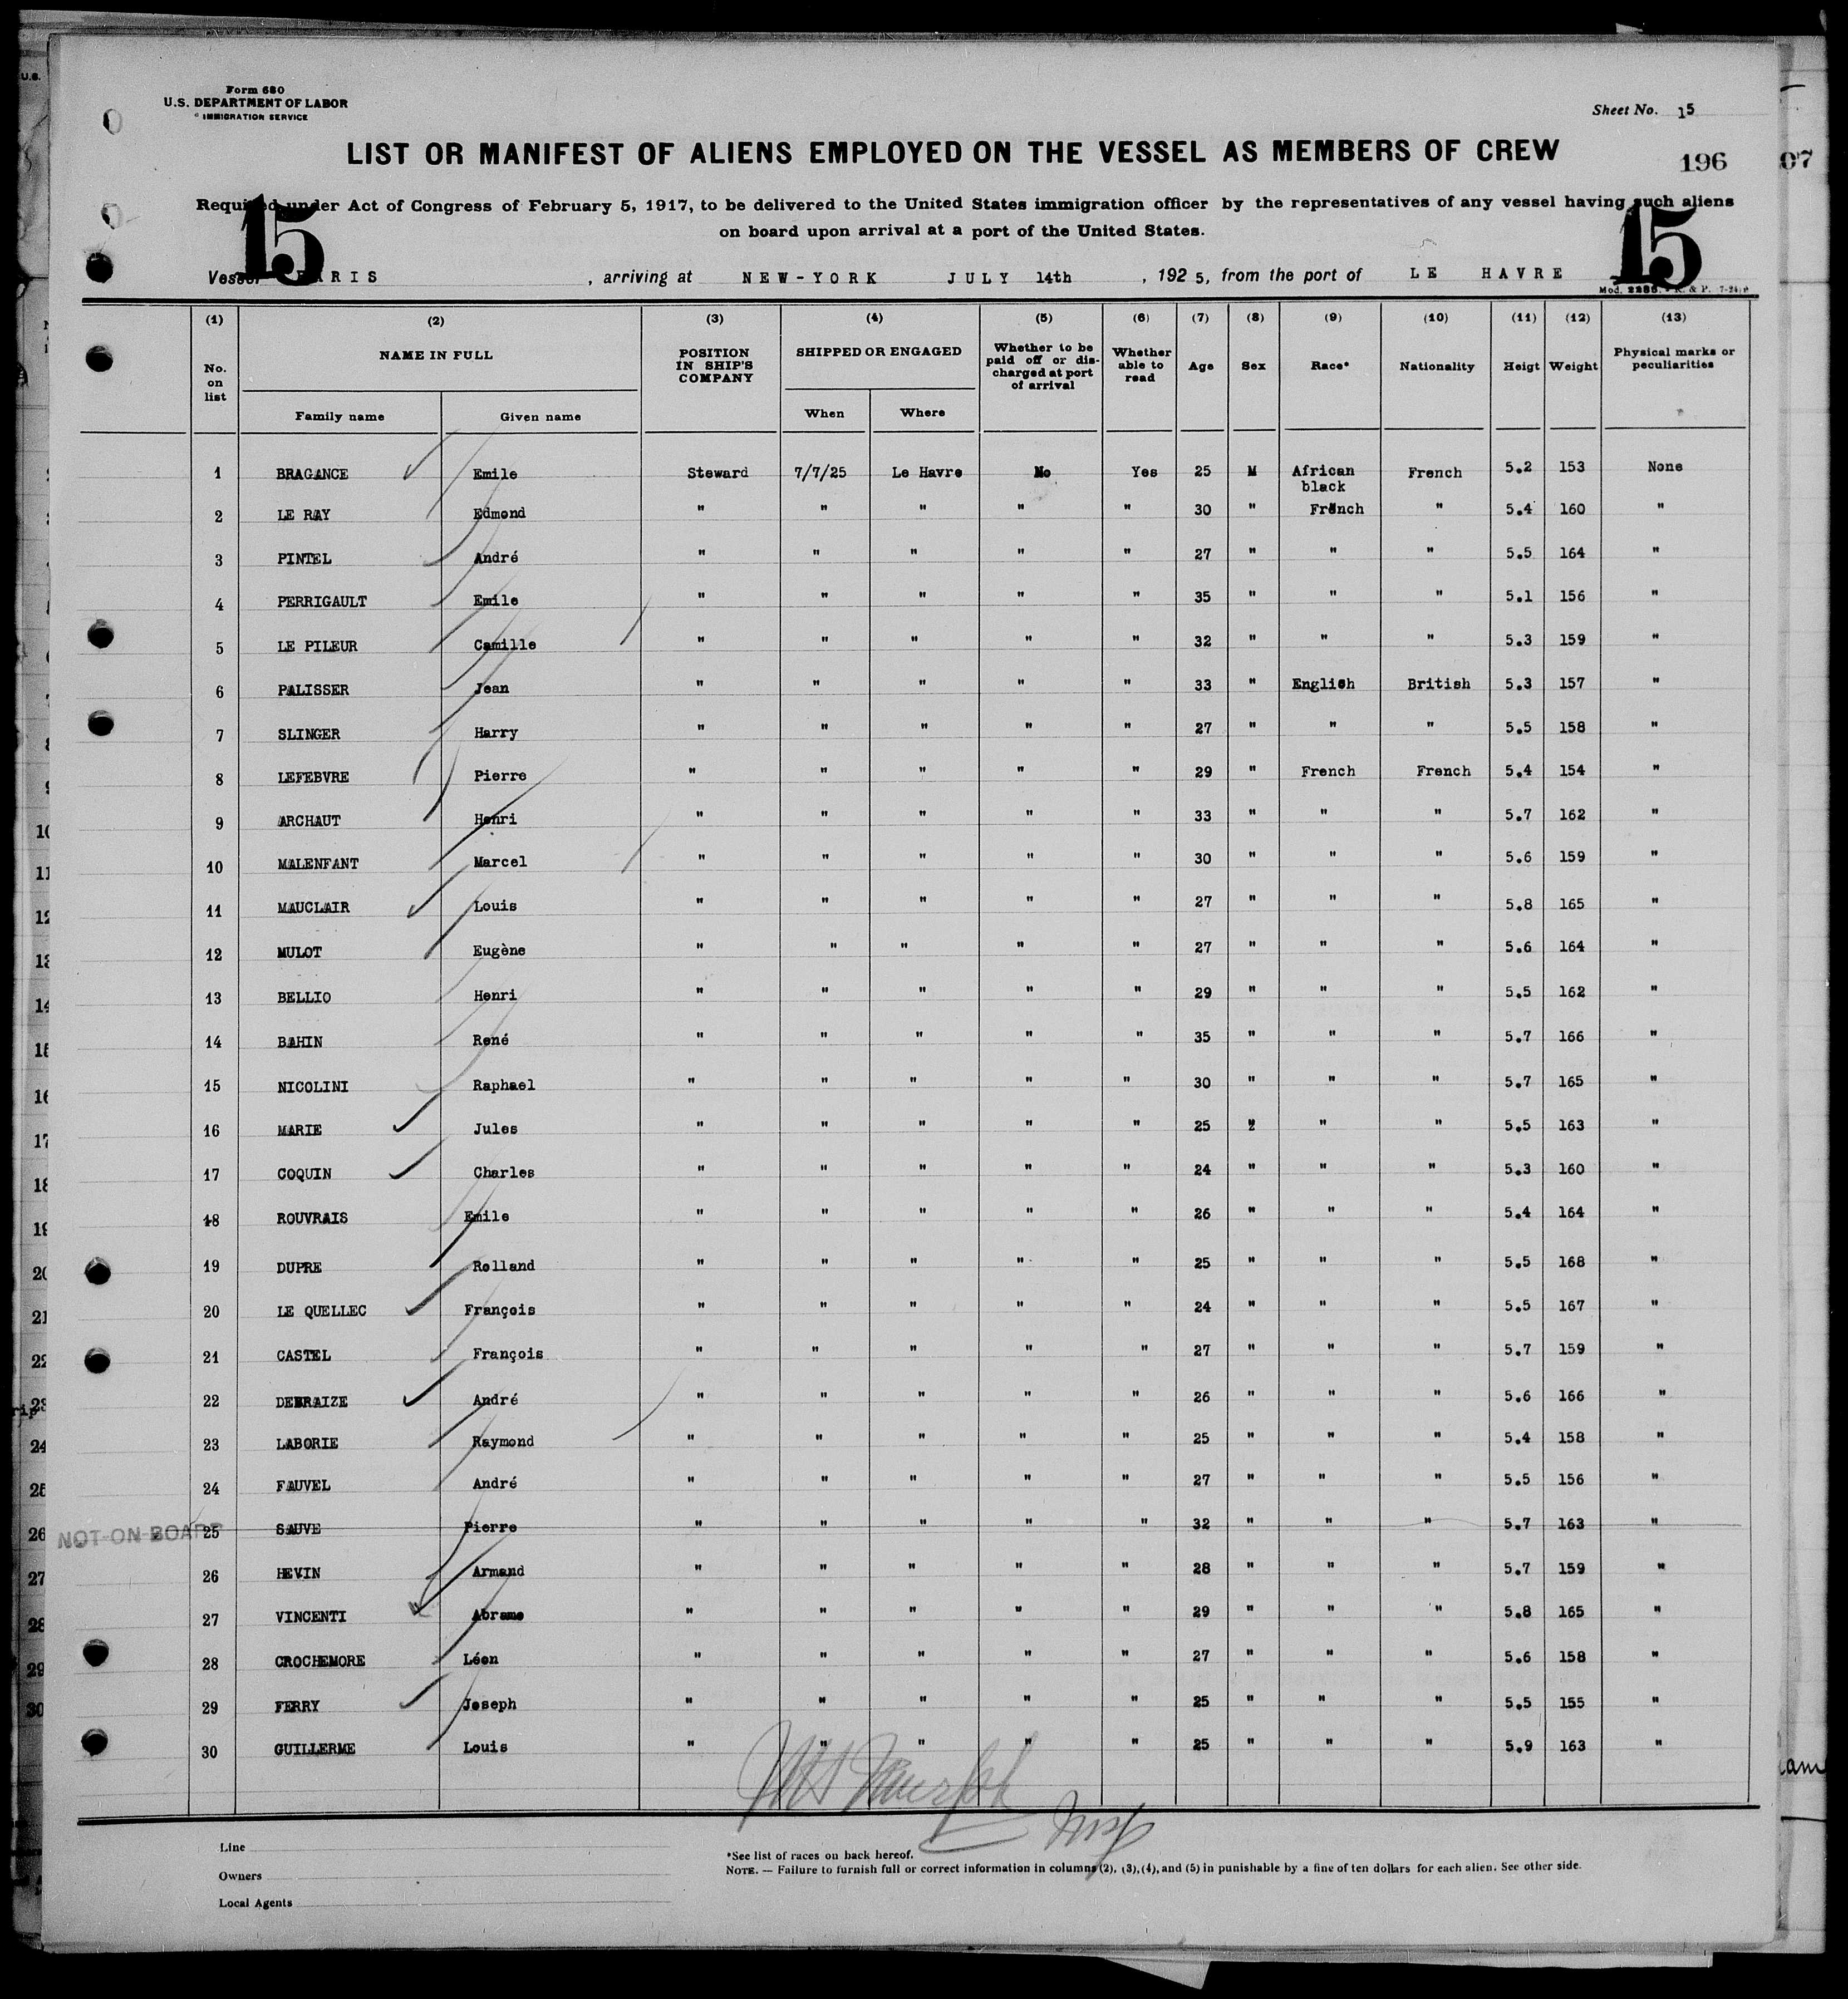 Form 680
U.S. DEPARTMENT OF LABOR
IMMIGRATION SERVICE
Sheet No. 15
LIST OR MANIFEST OF ALIENS EMPLOYED ON THE VESSEL AS MEMBERS OF CREW
196
07
Required under Act of Congress of February 5, 1917, to be delivered to the United States immigration officer by the representatives of any vessel having such aliens
on board upon arrival at a port of the United States.
15
15
Vessel PARIS , arriving at NEW-YORK JULY 14th , 1925, from the port of LE HAVRE
(1) (2) (3) (4) (5) (6) (7) (8) (9) (10) (11) (12) (13)
No. on list NAME IN FULL POSITION IN SHIP'S COMPANY SHIPPED OR ENGAGED Whether to be paid off or discharged at port of arrival Whether able to read Age Sex Race* Nationality Heigt Weight Physical marks or peculiarities
Family name Given name When Where
1 BRAGANCE Emile Steward 7/7/25 Le Havre No Yes 25 M African black French 5.2 153 None
2 LE RAY Edmond " " " " " 30 " French " 5.4 160 "
3 PINTEL André " " " " " 27 " " " 5.5 164 "
4 PERRIGAULT Emile " " " " " 35 " " " 5.1 156 "
5 LE PILEUR Camille " " " " " 32 " " " 5.3 159 "
6 PALISSER Jean " " " " " 33 " English British 5.3 157 "
7 SLINGER Harry " " " " " 27 " " " 5.5 158 "
8 LEFEBVRE Pierre " " " " " 29 " French French 5.4 154 "
9 ARCHAUT Henri " " " " " 33 " " " 5.7 162 "
10 MALENFANT Marcel " " " " " 30 " " " 5.6 159 "
11 MAUCLAIR Louis " " " " " 27 " " " 5.8 165 "
12 MULOT Eugène " " " " " 27 " " " 5.6 164 "
13 BELLIO Henri " " " " " 29 " " " 5.5 162 "
14 BAHIN René " " " " " 35 " " " 5.7 166 "
15 NICOLINI Raphael " " " " " 30 " " " 5.7 165 "
16 MARIE Jules " " " " " 25 " " " 5.5 163 "
17 COQUIN Charles " " " " " 24 " " " 5.3 160 "
18 ROUVRAIS Emile " " " " " 26 " " " 5.4 164 "
19 DUPRE Rolland " " " " " 25 " " " 5.5 168 "
20 LE QUELLEC François " " " " " 24 " " " 5.5 167 "
21 CASTEL François " " " " " 27 " " " 5.7 159 "
22 DEBRAIZE André " " " " " 26 " " " 5.6 166 "
23 LABORIE Raymond " " " " " 25 " " " 5.4 158 "
24 FAUVEL André " " " " " 27 " " " 5.5 156 "
NOT ON BOARD 25 SAUVE Pierre " " " " " 32 " " " 5.7 163 "
26 HEVIN Armand " " " " " 28 " " " 5.7 159 "
27 VINCENTI Abramo " " " " " 29 " " " 5.8 165 "
28 CROCHEMORE Léon " " " " " 27 " " " 5.6 158 "
29 FERRY Joseph " " " " " 25 " " " 5.5 155 "
30 GUILLERME Louis " " " " " 25 " " " 5.9 163 "
Line
Owners
Local Agents
*See list of races on back hereof.
NOTE. — Failure to furnish full or correct information in columns (2), (3), (4), and (5) in punishable by a fine of ten dollars for each alien. See other side.